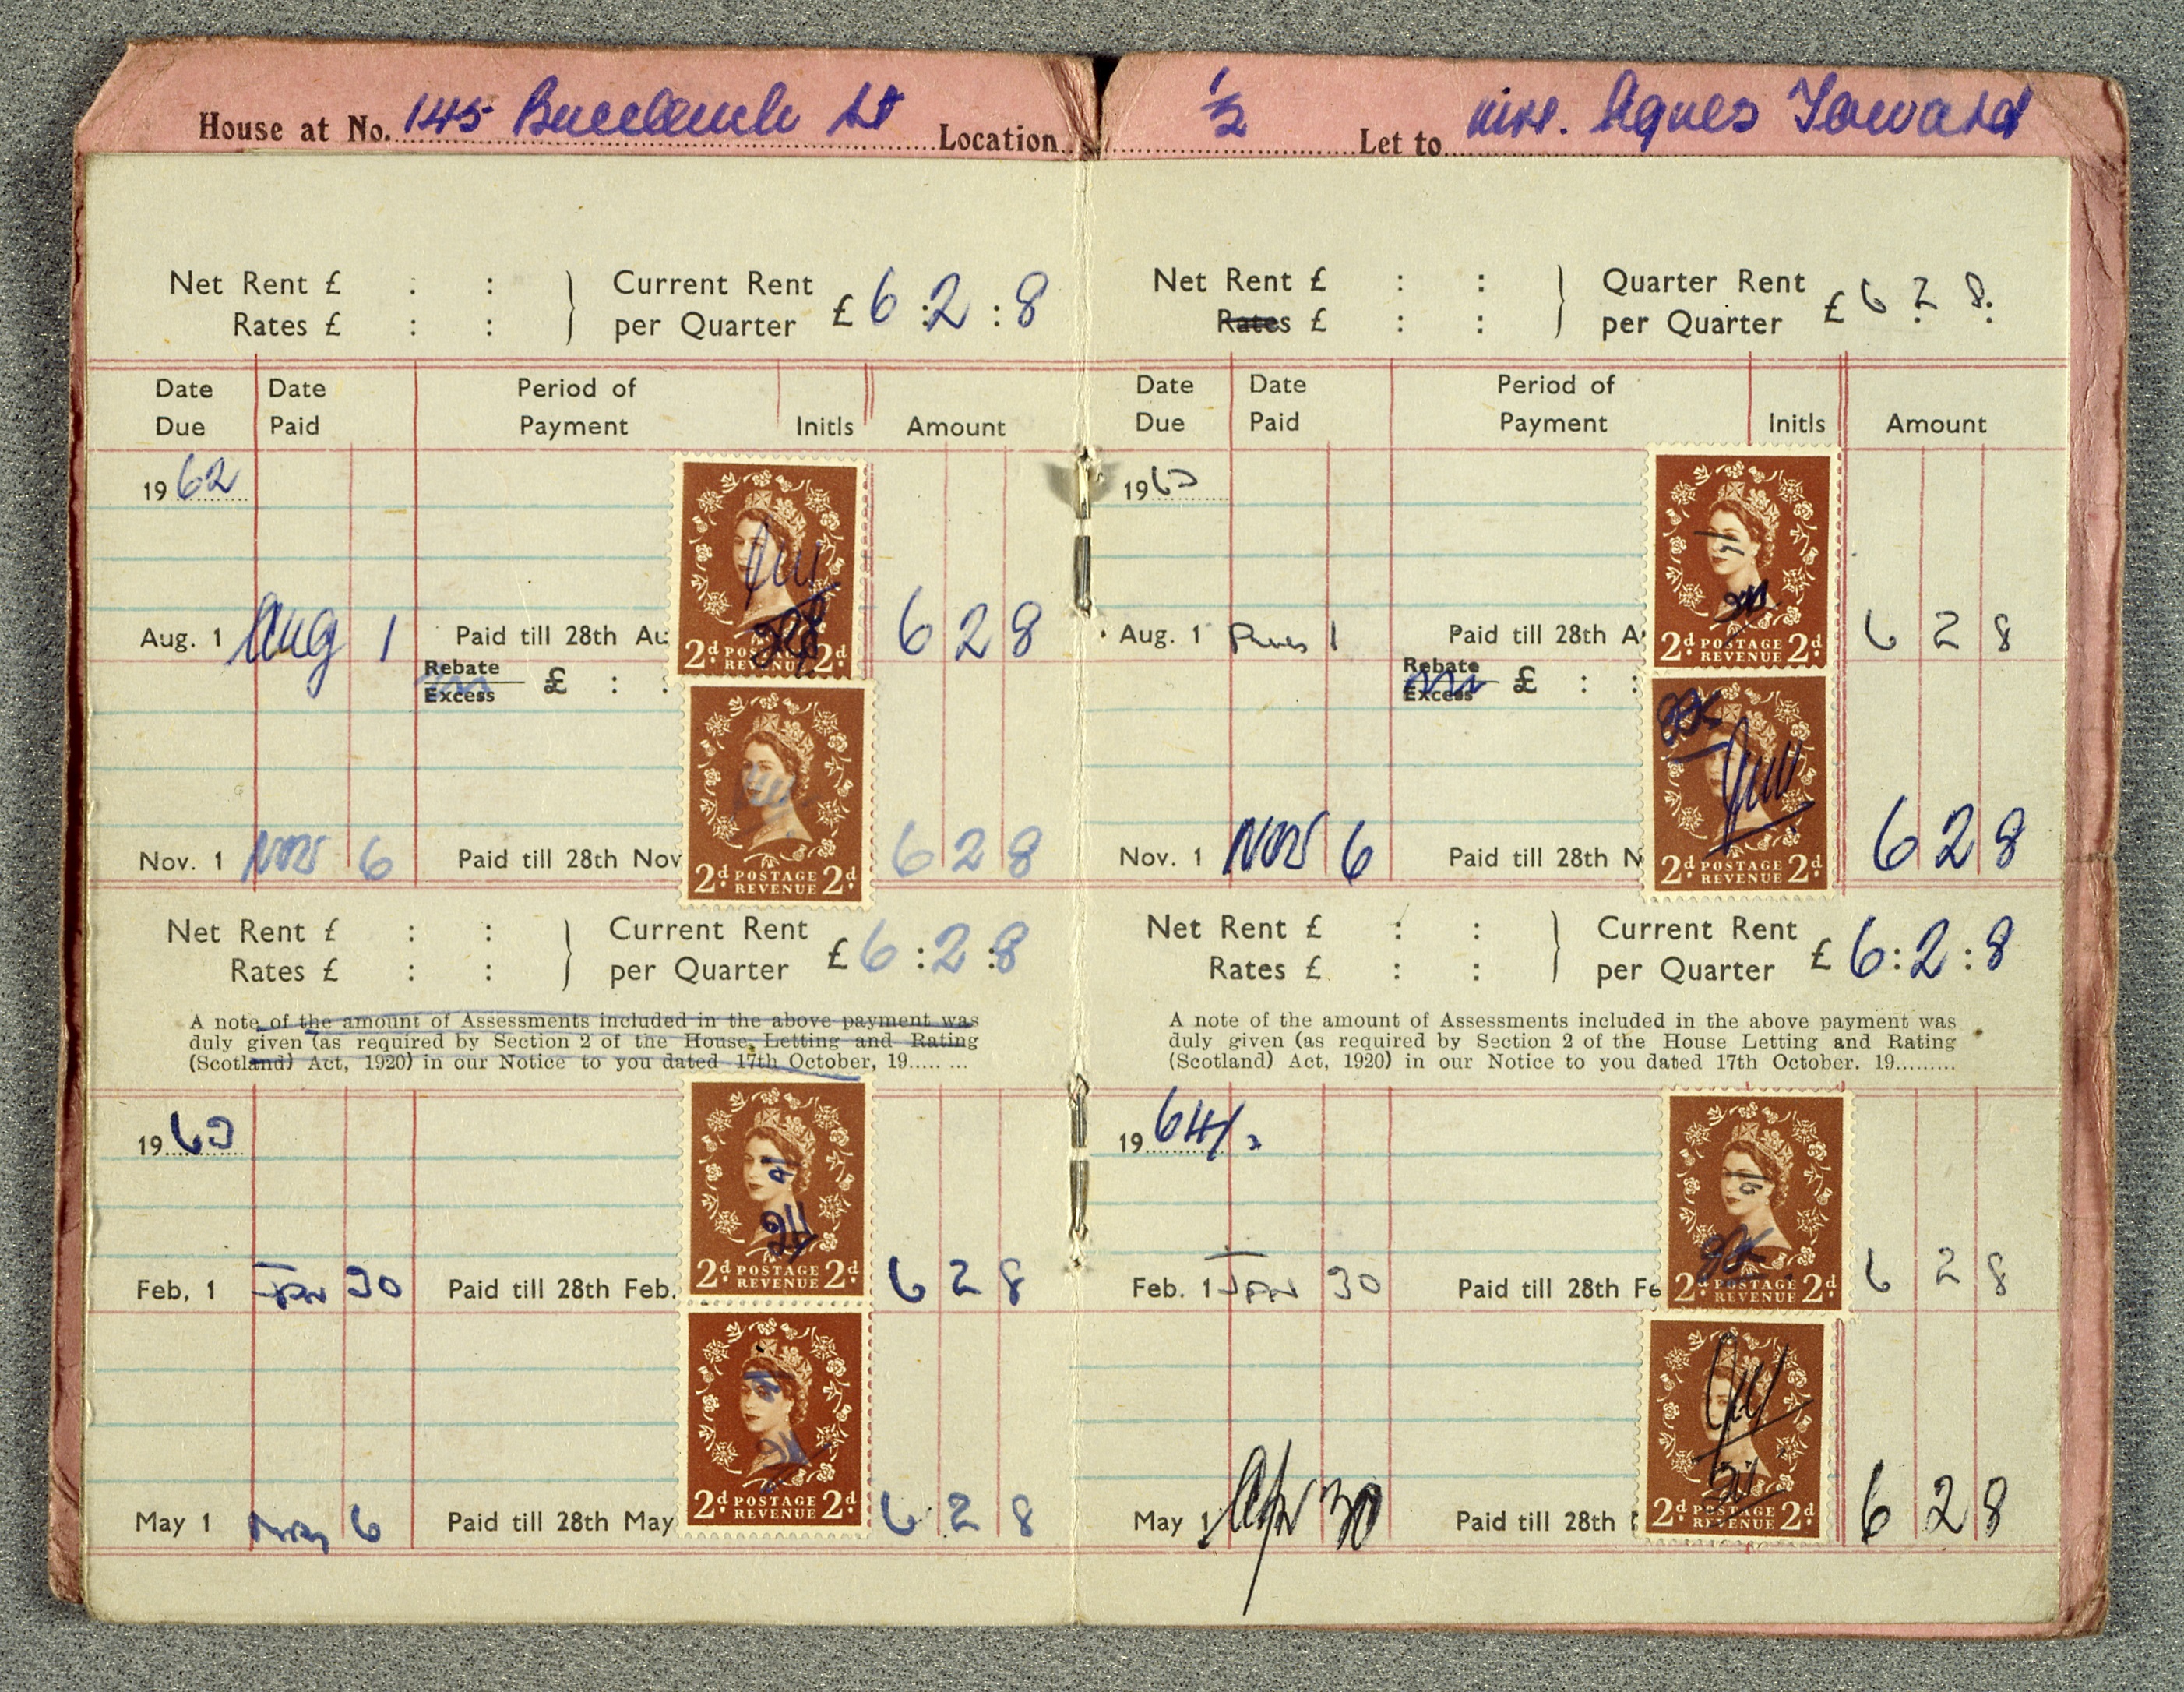 House at No. 145 Buccleuch St Location 1/2 Let to Miss. Agnes Toward
Net Rent £ : : } Current Rent £ 6 : 2 : 8
Rates £ : : per Quarter
Date Due Date Paid Period of Payment Initls Amount
1962
Aug. 1 Aug 1 Paid till 28th Au 6 2 8
Rebate
Excess £ : :
2d POSTAGE REVENUE 2d
Nov. 1 Nov 6 Paid till 28th Nov 6 2 8
2d POSTAGE REVENUE 2d
Net Rent £ : : } Current Rent £ 6 : 2 : 8
Rates £ : : per Quarter
A note of the amount of Assessments included in the above payment was
duly given (as required by Section 2 of the House Letting and Rating
(Scotland) Act, 1920) in our Notice to you dated 17th October, 19........
1963
Feb. 1 Jan 30 Paid till 28th Feb. 6 2 8
2d POSTAGE REVENUE 2d
May 1 May 6 Paid till 28th May 6 2 8
2d POSTAGE REVENUE 2d
Net Rent £ : : } Quarter Rent £ 6 2 8
Rates £ : : per Quarter
Date Due Date Paid Period of Payment Initls Amount
1963
Aug. 1 Aug 1 Paid till 28th A 6 2 8
2d POSTAGE REVENUE 2d
Rebate
Excess £ : :
Nov. 1 Nov 6 Paid till 28th N 6 2 8
2d POSTAGE REVENUE 2d
Net Rent £ : : } Current Rent £ 6 : 2 : 8
Rates £ : : per Quarter
A note of the amount of Assessments included in the above payment was
duly given (as required by Section 2 of the House Letting and Rating
(Scotland) Act, 1920) in our Notice to you dated 17th October. 19.........
1964
Feb. 1 Jan 30 Paid till 28th Fe 6 2 8
2d POSTAGE REVENUE 2d
May 1 Apr 30 Paid till 28th 6 2 8
2d POSTAGE REVENUE 2d